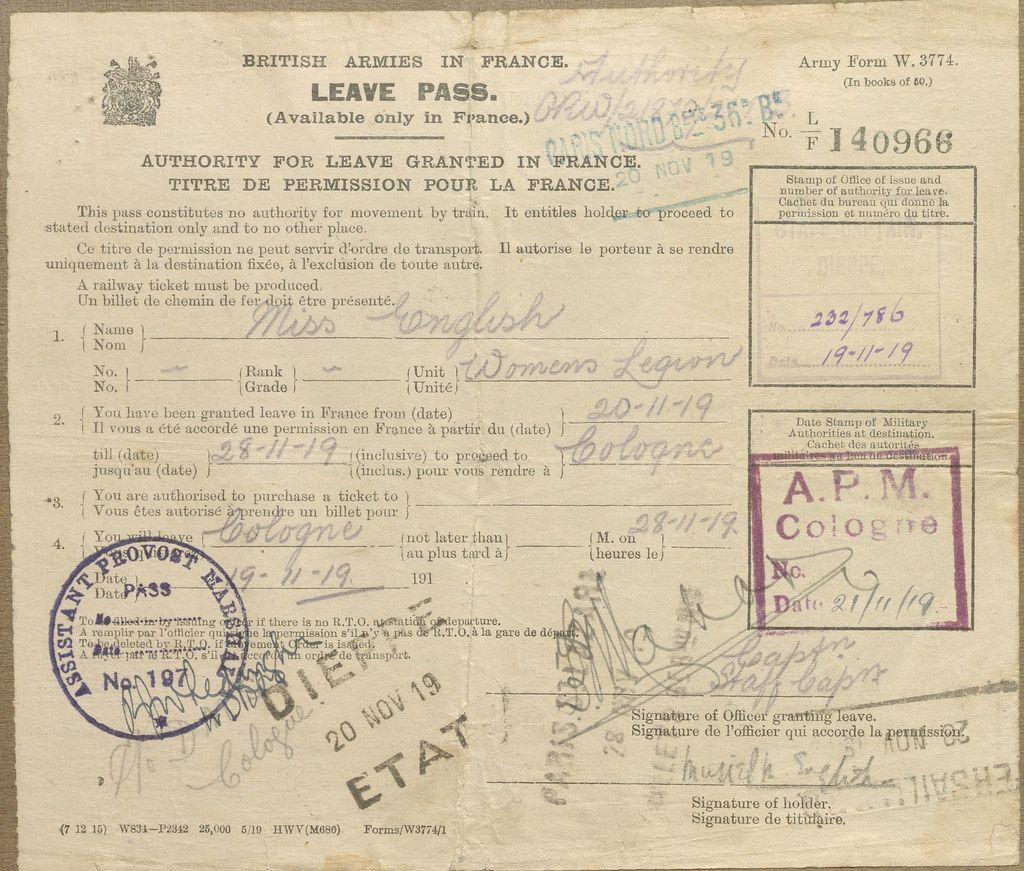 BRITISH ARMIES IN FRANCE.
LEAVE PASS.
(Available only in France.)
Authority
Army Form W. 3774.
(In books of 50.)
No. L/F 140966
PARIS NORD 36e Bu
20 NOV 19
AUTHORITY FOR LEAVE GRANTED IN FRANCE.
TITRE DE PERMISSION POUR LA FRANCE.
This pass constitutes no authority for movement by train. It entitles holder to proceed to
stated destination only and to no other place.
Ce titre de permission ne peut servir d'ordre de transport. Il autorise le porteur à se rendre
uniquement à la destination fixée, à l'exclusion de toute autre.
A railway ticket must be produced.
Un billet de chemin de fer doit être présenté.
Stamp of Office of issue and
number of authority for leave.
Cachet du bureau qui donne la
permission et numéro du titre.
No. 232/786
Date 19-11-19
1. Name Miss English
Nom
No. Rank Unit Womens Legion
No. Grade Unité
2. You have been granted leave in France from (date) 20-11-19
Il vous a été accordé une permission en France à partir du (date)
till (date) 28-11-19 (inclusive) to proceed to Cologne
jusqu'au (date) (inclus.) pour vous rendre à
*3. You are authorised to purchase a ticket to
Vous êtes autorisé à prendre un billet pour
4. You will leave Cologne not later than M. on 28-11-19.
au plus tard à heures le
Date 19-11-19. 191
Date
Date Stamp of Military
Authorities at destination.
Cachet des autorités
militaires au lieu de destination.
A.P.M.
Cologne
No.
Date 21/11/19.
To be filled in by issuing officer if there is no R.T.O. at station of departure.
A remplir par l'officier qui signe la permission s'il n'y a pas de R.T.O. à la gare de départ.
To be deleted by R.T.O. if movement order is issued.
A rayer par le R.T.O. s'il accorde un ordre de transport.
ASSISTANT PROVOST MARSHAL
PASS
No
Date
No. 197
Cologne
DIEPPE
20 NOV 19
ETAT
PARIS
28 NOV
Captn
Staff Captn
Signature of Officer granting leave.
Signature de l'officier qui accorde la permission.
20 NOV 19
VERSAILL
Muriel English
Signature of holder.
Signature de titulaire.
(7 12 15) W834—P2342 25,000 5/19 HWV(M686) Forms/W3774/1